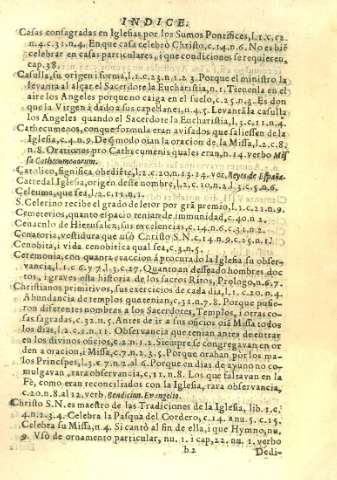 INDICE.
Casas consagradas en Iglesias por los Sumos Pontifices, l.1.c.12.
n.4.c.31.n.4. En que casa celebrò Christo, c.14.n.6. No es biē
celebrar en casas particulares, i que condiciones se requierē,
cap.38.
Casulla, su origen i forma, l.2.c.23.n.1.2.3. Porque el ministro la
levanta al alçar el Sacerdote la Eucharistia, n.1. Tienenla en el
aire los Angeles porque no caiga en el suelo, c.25.n.3. Es don
que la Virgen à dado a sus capellanes, n.4.5. Levantā la casulla
los Angeles quando el Sacerdote la Eucharistia, l.3.c.11.n.4.
Cathecumenos, con que formula eran avisados que saliessen de la
Iglesia, c.4.n.9. De modo oian la oracion de la Missa, l.2.c.8.
n.8. Oraciones pro Cathecumenis quales eran, n.14. verbo Mis
sa Cathecumenorum.
Catolico, significa obediēte, l.2.c.20.n.13.14. vèr, Reyes de España.
Catredal Iglesia, origen desse nombre, l.2.c.10.n.2.l.3.c.5.n.6.
Celeuma, que sea, l.2.c.11.n.1.
S. Celerino recibe el grado de letor por grā premio, l.1.c.21.n.9.
Cemeterios, quanto espacio tenian de immunidad, c.40.n.2.
Cenaculo de Hierusalen, sus excelencias, c.14.n.6.c.31.n.2.
Cenatoria, vestidura que usò Christo S.N.c.14.n.9.c.15.n.1.
Cenobita, i vida cenobitica qual sea, c.3.n.5.
Ceremonia, con quanta exaccion à procurado la Iglesia su obser-
vancia, l.1.c.6.7.l.3.c.27. Quanto an desseado hombres doc
tos, i graves esta historia de los sacros Ritos, Prologo, n.6.7.
Christianos primitivos, sus exercicios de cada dia, l.1.c.20.n.4.
Abundancia de templos que tenian, c.32.n.7.8. Porque pusie-
ron diferentes nombres a los Sacerdotes, Templos, i otras co-
sas sagradas, c.32.n.5. Antes de ir a sus oficios oiā Missa todos
los dias, l.2.c.1.n.1. Observancia que tenian antes de entrar
en los divinos oficios, c.2.n.12. Siempre se congregavan en or
den a oracion, i Missa, c.7.n.2.3.5. Porque oraban por los ma-
los Principes, l.3.c.7.n.2.al 6. Porque en dias de ayuno no co-
mulgavan, rara observancia, c.12.n.8. Los que faltavan en la
Fè, como eran reconciliados con la Iglesia, rara observancia,
c.20.n.8.al 12. verb. Bendicion. Evangelio.
Christo S.N. es maestro de las Tradiciones de la Iglesia, lib.1.c.
4.n.2.3.4. Celebra la Pasqua del Cordero, c.14.nu.5.c.15.
Celebra su Missa, n.4. Si cantò al fin de ella, i que Hymno, nu.
9. Vsò de ornamento particular, nu.1.i cap.22.nu.1. verbo
b2 Dedi-